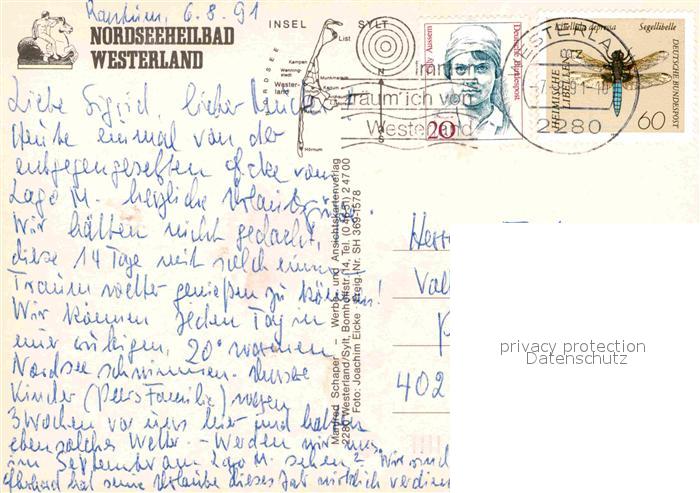 Rantum, 6.8.91
NORDSEEHEILBAD
WESTERLAND
INSEL SYLT
List
Kampen
Wenning-
stedt
Munkmarsch
Wester-
land
Keitum
Hörnum
N
S
NORDSEE
Immer
träum' ich von
Westerland
Elly Aussem
Deutsche Bundespost
20
2280
Libellula depressa Segellibelle
HEIMISCHE
LIBELLEN
DEUTSCHE BUNDESPOST
60
Liebe Sigrid, lieber
Heute einmal von der
entgegengesetzten Ecke vom
Lago M. herzliche Urlaubsgrüße.
Wir hätten nicht gedacht,
diese 14 Tage mit solch einem
Traumwetter genießen zu können!
Wir können jeden Tag in
einer ruhigen, 20° warmen
Nordsee schwimmen. Unsere
Kinder (Peers Familie) waren
3 Wochen vor uns hier und hatten
ebensolches Wetter. - Werden wir uns
im September am Lago M. sehen? Wir sind
hat seine Urlaube dieses Jahr wirklich verdient
Manfred Schaper – Werbe- und Ansichtskartenverlag
2280 Westerland/Sylt, Bomhoffstr. 14, Tel. (0 46 51) 2 47 00
Foto: Joachim Eicke – Freig. Nr. SH 369-1578
Herr
402
privacy protection
Datenschutz